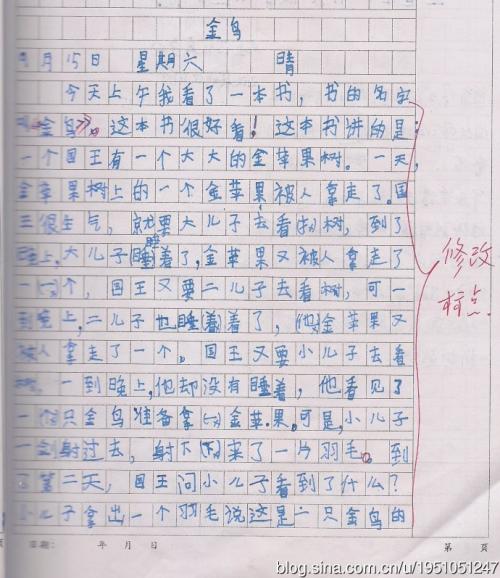 金鸟
9月15日 星期六 晴
今天上午我看了一本书,书的名字
叫金鸟》。这本书很好看!这本书讲的是:
一个国王有一个大大的金苹果树。一天,
金苹果树上的一个金苹果被人拿走了。国
王很生气,就要大儿子去看树,到了
晚上,大儿子睡着了,金苹果又被人拿走了
一个,国王又要二儿子去看树,可一
到晚上,二儿子也睡着了,金苹果又
被人拿走了一个。国王又要小儿子去看
树。一到晚上,他却没有睡着,他看见了
一只金鸟准备拿金苹果。可是,小儿子
一剑射过去,射下来了一片羽毛。到
了第二天,国王问小儿子看到了什么?
小儿子拿出一个羽毛说这是一只金鸟的
修改
标点
日期: 年 月 日
第 页
页
blog.sina.com.cn/u/1951051247